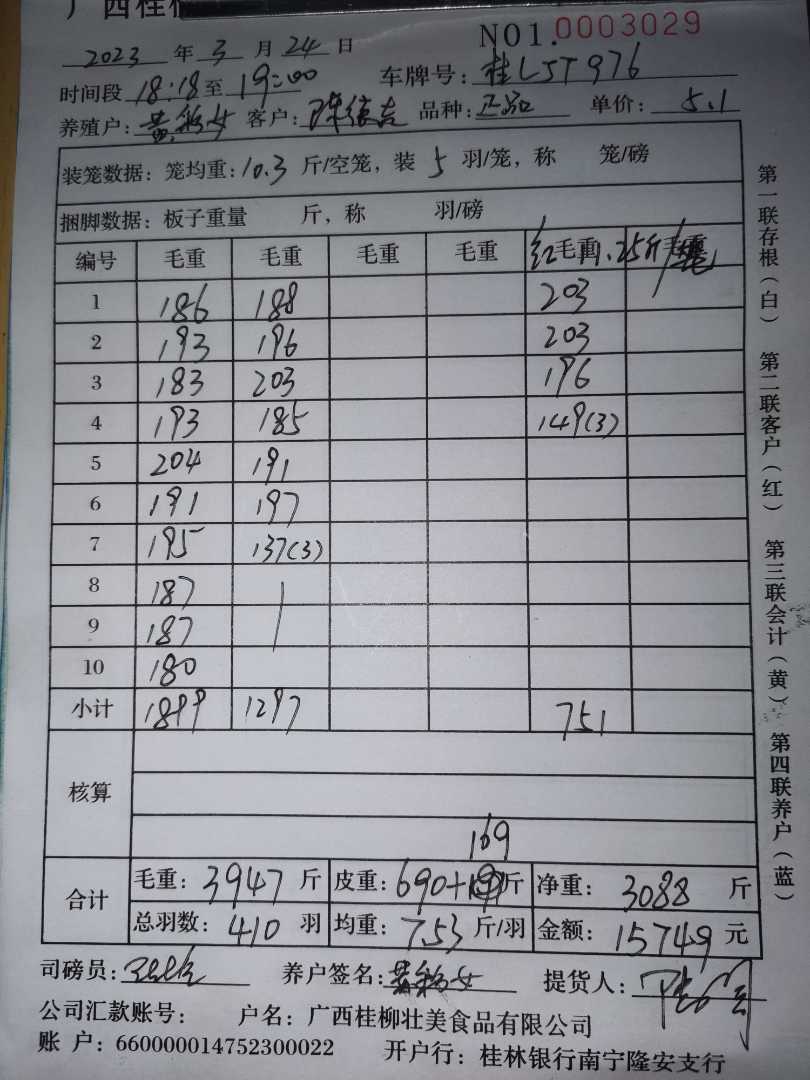 广西桂
NO1.0003029
2023 年 3 月 24 日
时间段 18:18 至 19:00 车牌号: 桂LJT976
养殖户: 黄 女 客户: 品种: 正品 单价: 5.1
装笼数据: 笼均重: 10.3 斤/空笼, 装 5 羽/笼, 称 笼/磅
捆脚数据: 板子重量 斤, 称 羽/磅
编号 毛重 毛重 毛重 毛重 红毛重 1.25斤/ 毛重
1 186 188 203
2 193 196 203
3 183 203 196
4 193 185 149(3)
5 204 191
6 191 197
7 195 137(3)
8 187
9 187
10 180
小计 1899 1297 751
核算
169
合计 毛重: 3947 斤 皮重: 690+ 斤 净重: 3088 斤
总羽数: 410 羽 均重: 7.53 斤/羽 金额: 15749 元
司磅员: 养户签名: 黄 女 提货人:
公司汇款账号: 户名: 广西桂柳壮美食品有限公司
账 户: 660000014752300022 开户行: 桂林银行南宁隆安支行
第一联存根(白) 第二联客户(红) 第三联会计(黄) 第四联养户(蓝)